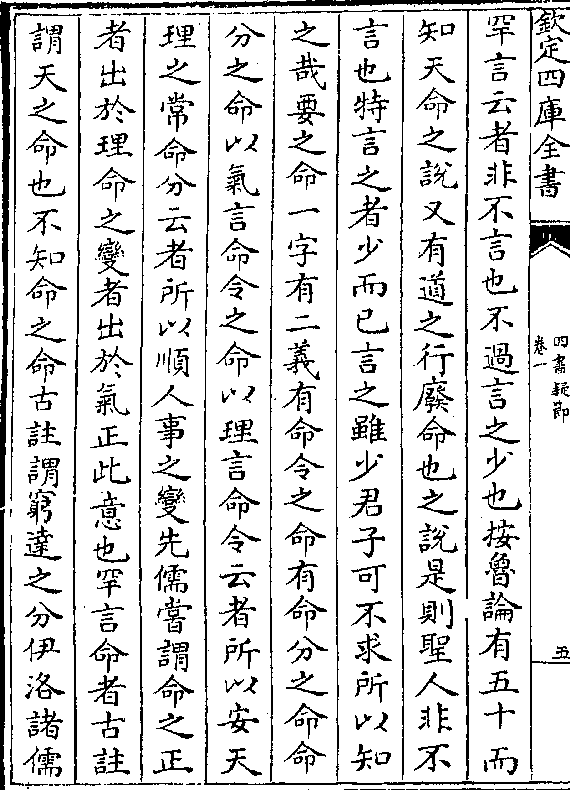 欽定四庫全書
四書疑節
卷一
五
罕言云者非不言也不過言之少也按魯論有五十而
知天命之說又有道之行廢命也之說是則聖人非不
言也特言之者少而已言之雖少君子可不求所以知
之哉要之命一字有二義有命令之命有命分之命命
分之命以氣言命令之命以理言命令云者所以安天
理之常命分云者所以順人事之變先儒嘗謂命之正
者出於理命之變者出於氣正此意也罕言命者古註
謂天之命也不知命之命古註謂窮達之分伊洛諸儒